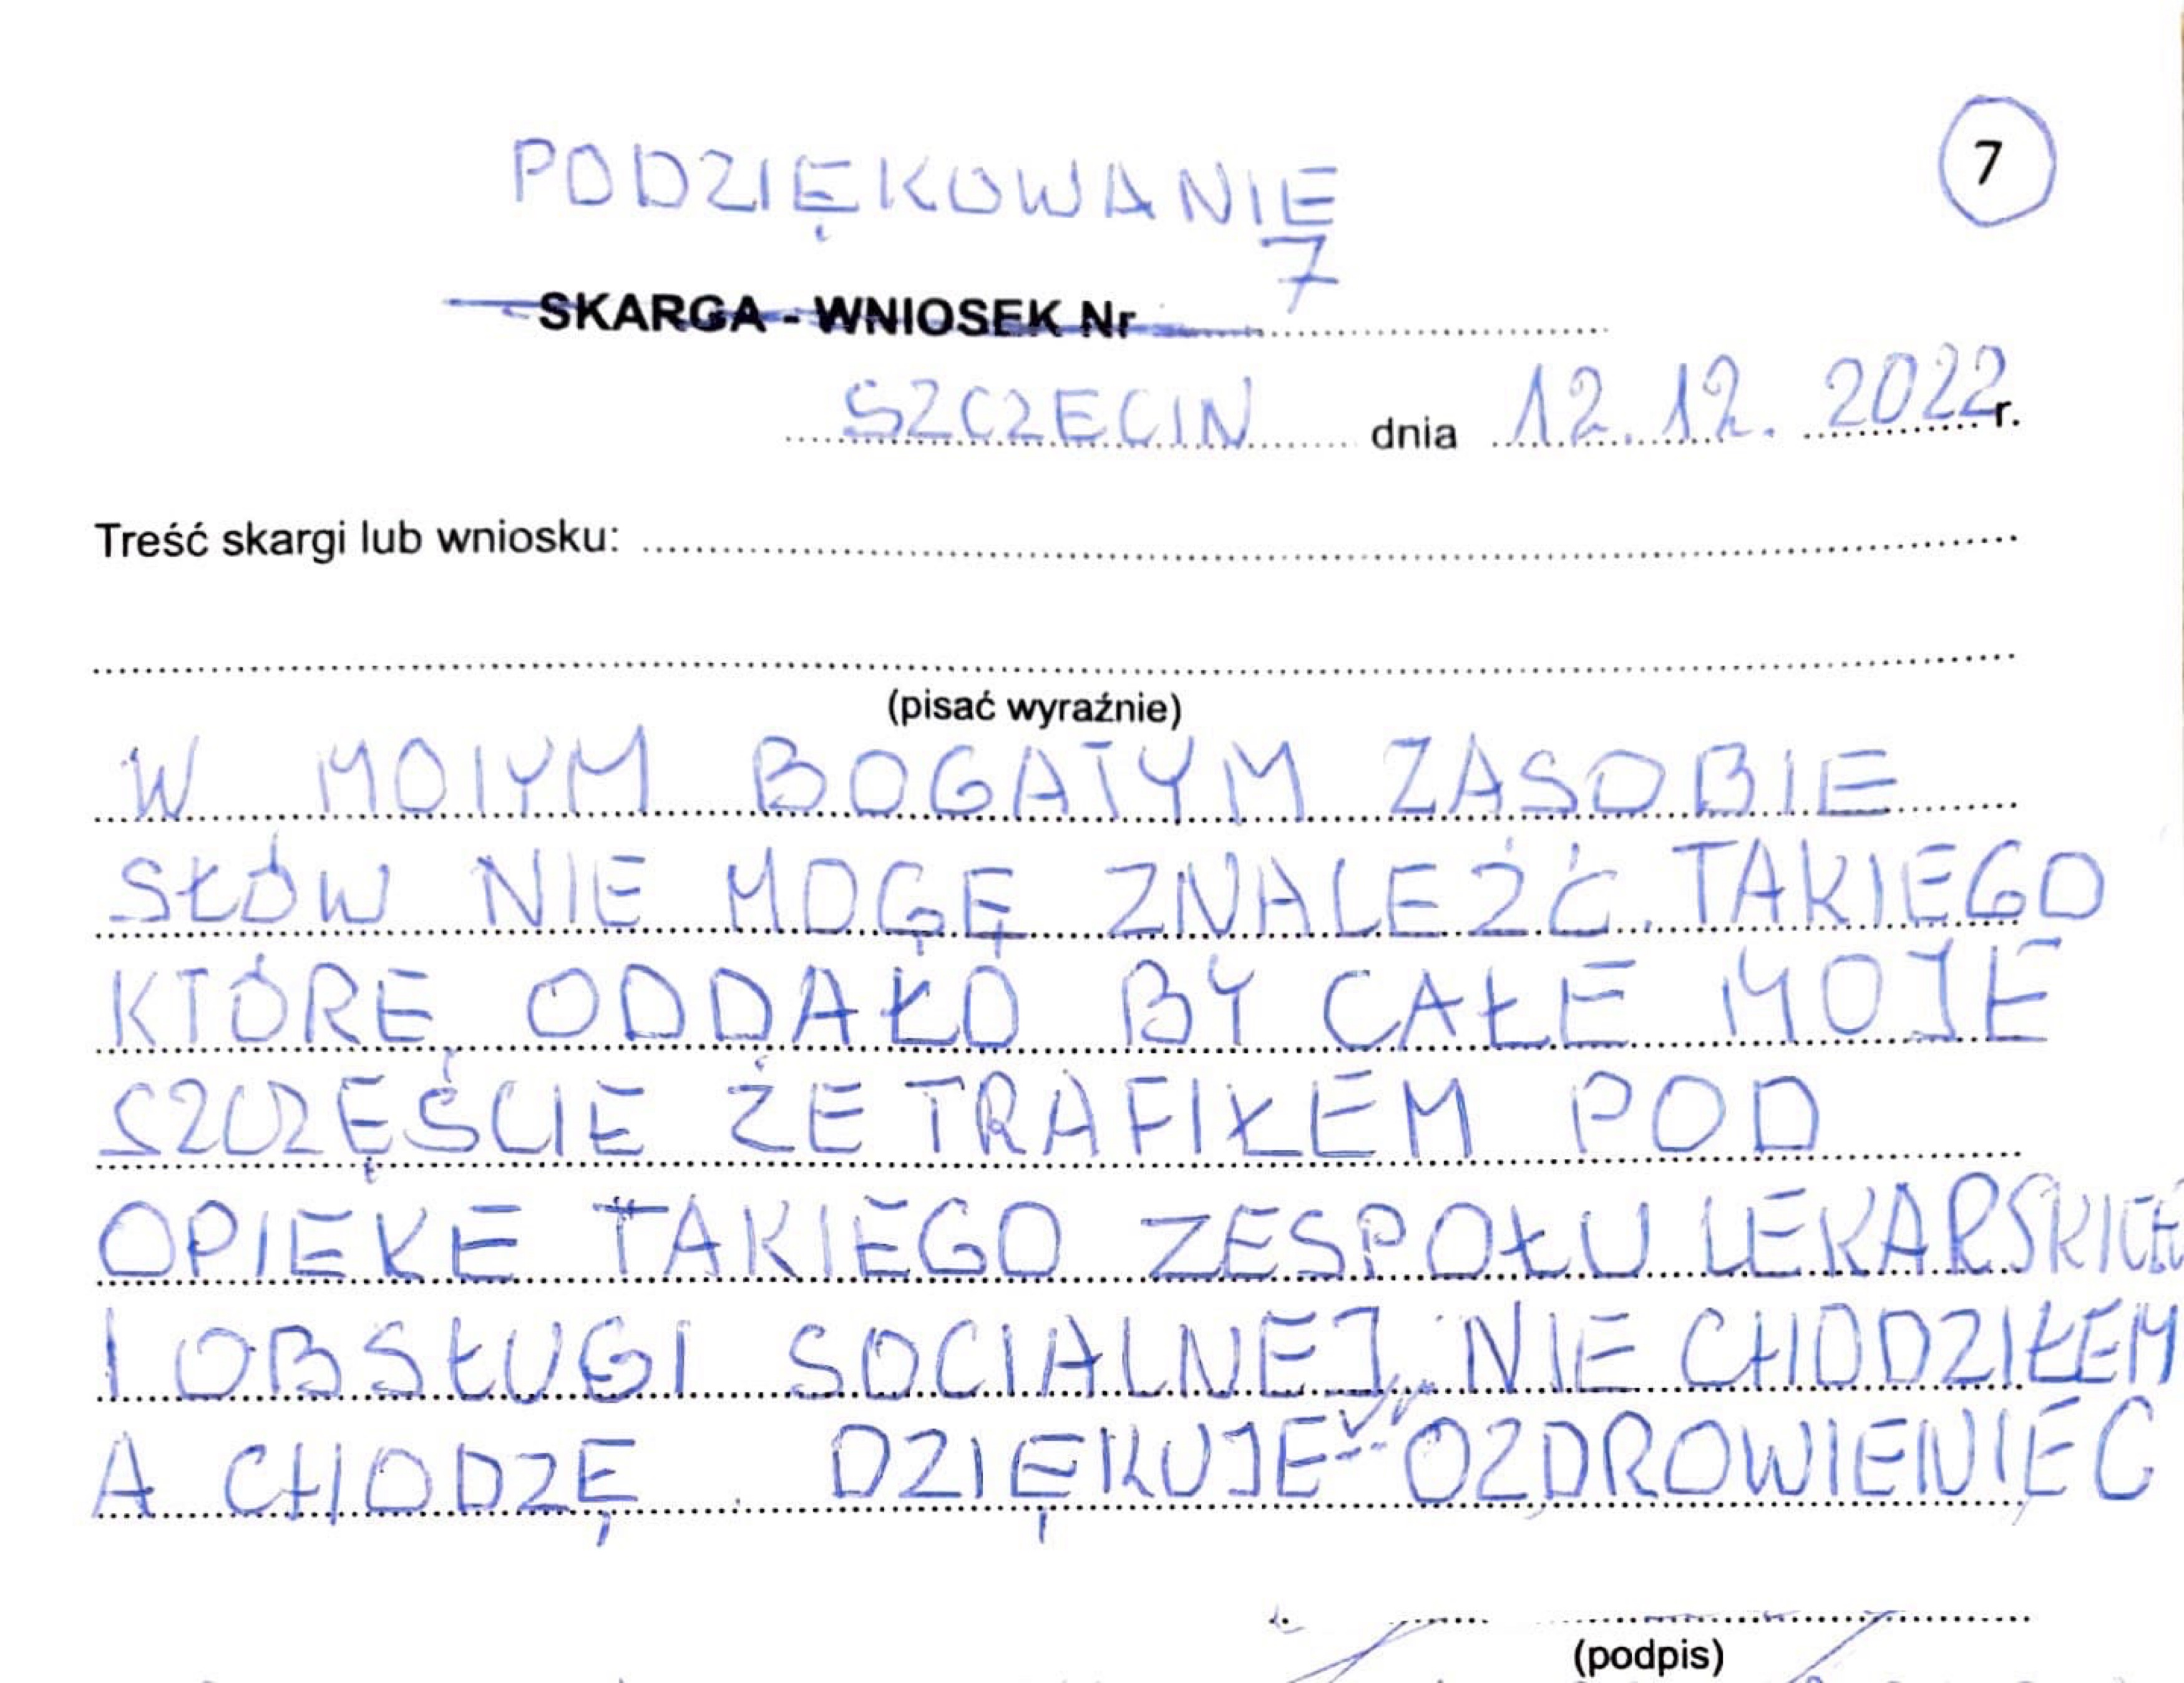 PODZIĘKOWANIE
7
7
SKARGA - WNIOSEK Nr
SZCZECIN dnia 12.12.2022 r.
Treść skargi lub wniosku:
(pisać wyraźnie)
W MOIYM BOGATYM ZASOBIE
SŁÓW NIE MOGĘ ZNALEŹĆ. TAKIEGO
KTÓRE ODDAŁO BY CAŁE MOJE
SZCZĘŚCIE ŻE TRAFIŁEM POD
OPIEKE TAKIEGO ZESPOŁU
I OBSŁUGI SOCIALNEJ. NIE CHODZIŁEM
A CHODZĘ. DZIĘKUJE OZDROWIENIEC
(podpis)